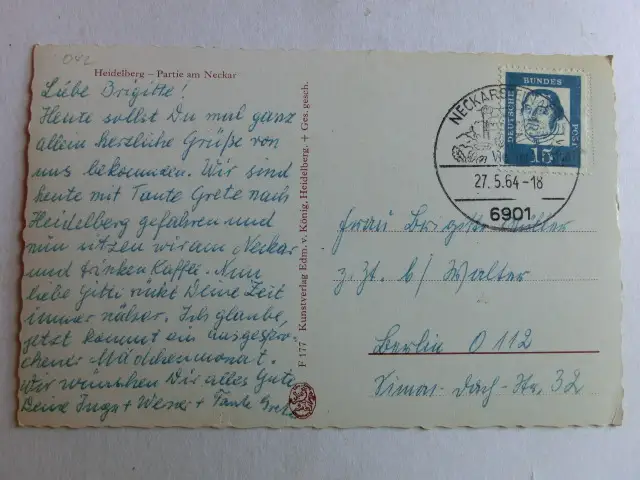 OV2
Heidelberg – Partie am Neckar
Liebe Brigitte!
Heute sollst Du mal ganz
allein herzliche Grüße von
uns bekommen. Wir sind
heute mit Tante Grete nach
Heidelberg gefahren und
nun sitzen wir am Neckar
und trinken Kaffee. Nun
liebe Gitti rückt Deine Zeit
immer näher. Ich glaube,
jetzt kommt ein ausgespro-
chener Mädchenmonat.
Wir wünschen Dir alles Gute
Deine Inge + Werner + Tante Grete
F 177 Kunstverlag Edm. v. König, Heidelberg. + Ges. gesch.
DEUTSCHE
BUNDES
POST
15
NECKARSTEINACH
27.5.64-18
6901
Frau Brigitte Müller
z.Zt. b/ Walter
Berlin O 112
Simon-Dach-Str. 32